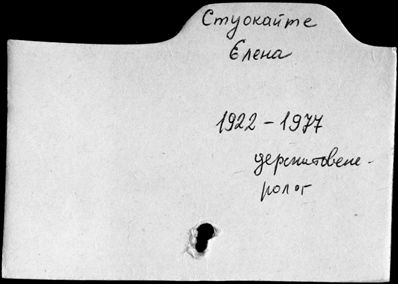 Стуокайте
Елена
1922 - 1977
дерматовене-
ролог